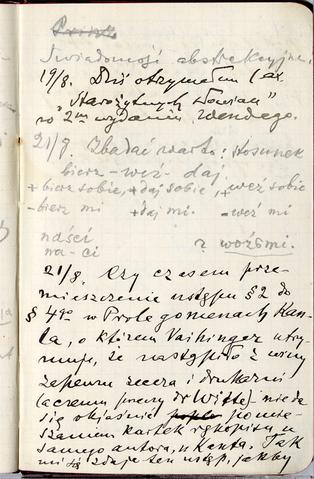 Świadomość abstrakcyjna.
19/8. Dziś otrzymałem 1 ex.
„Starożytnych Słowian"
w 2em wydaniu Wendego.
21/8. Zbadać warto: stosunek
bierz – weź – daj
+ bierz sobie, + daj sobie, + weź sobie
– bierz mi + daj mi. – weź mi
na-ci ? woźśmi.
21/8. Czy czasem prze-
mieszczenie ustępu § 2 do
§ 4go w Prolegomenach Kan-
ta, o którem Vaihinger utrzy-
muje, że nastąpiło z winy
zapewne zecera i drukarni
(aczemu przeczy dr Witte) nie da
się objaśnić pomie-
szaniem kartek rękopisu u
samego autora, u Kanta. Tak
mi się zdaje ten ustęp, jakby